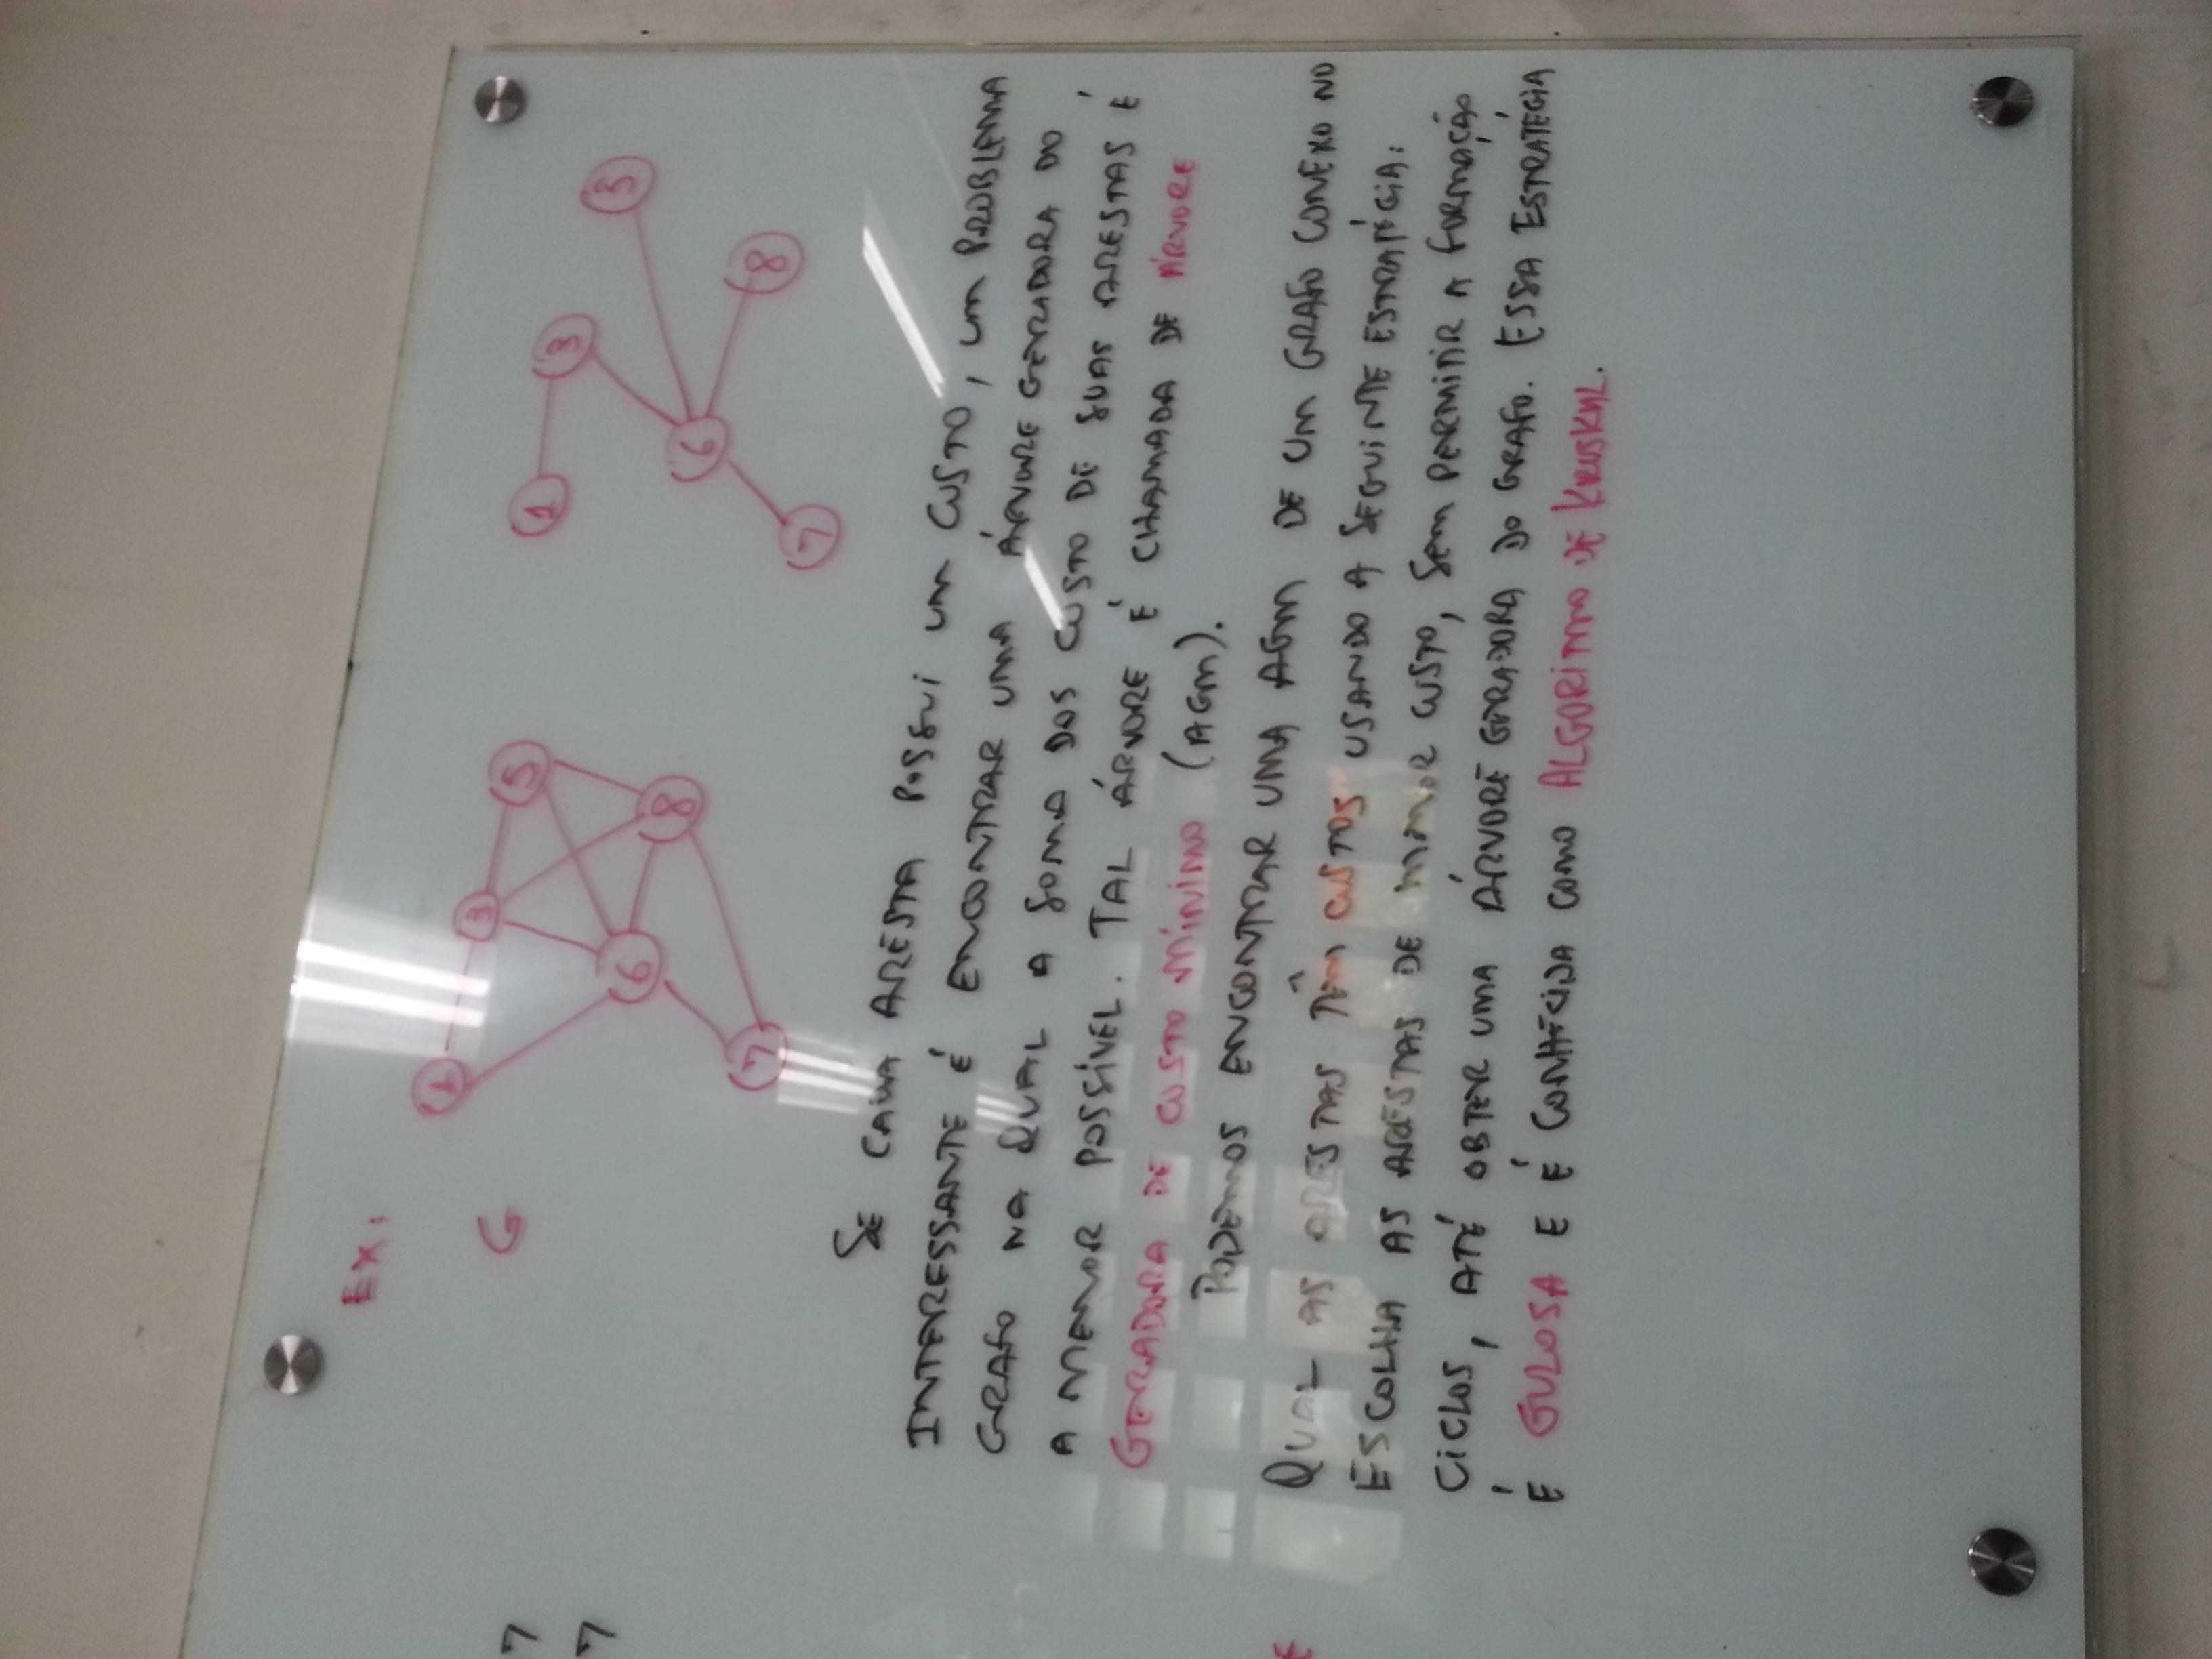 Ex:
G
1
3
5
6
8
7
1
3
5
6
8
7
SE CADA ARESTA POSSUI UM CUSTO, UM PROBLEMA
INTERESSANTE É ENCONTRAR UMA ÁRVORE GERADORA DO
GRAFO NA QUAL A SOMA DOS CUSTO DE SUAS ARESTAS É
A MENOR POSSÍVEL. TAL ÁRVORE É CHAMADA DE ÁRVORE
GERADORA DE CUSTO MÍNIMO (AGM).
PODEMOS ENCONTRAR UMA AGM DE UM GRAFO CONEXO NO
QUAL AS ARESTAS TÊM CUSTOS USANDO A SEGUINTE ESTRATÉGIA:
ESCOLHA AS ARESTAS DE MENOR CUSTO, SEM PERMITIR A FORMAÇÃO
CICLOS, ATÉ OBTER UMA ÁRVORE GERADORA DO GRAFO. ESSA ESTRATÉGIA
É GULOSA E É CONHECIDA COMO ALGORITMO DE KRUSKAL.
7
7